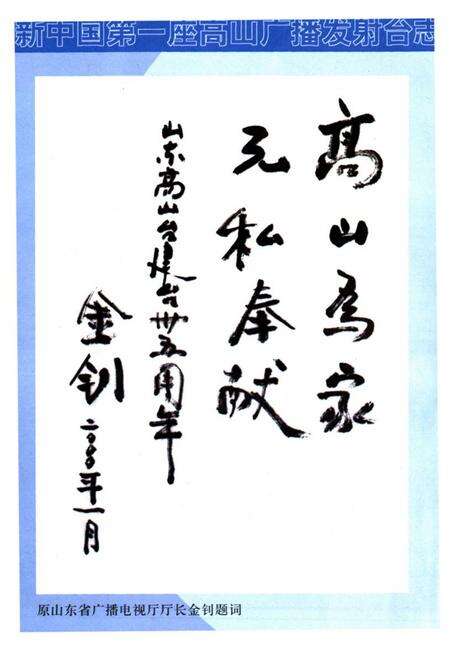 新中国第一座高山广播发射台志
高山为家
无私奉献
山东高山台建台卅五周年
金钊
二000年一月
原山东省广播电视厅厅长金钊题词